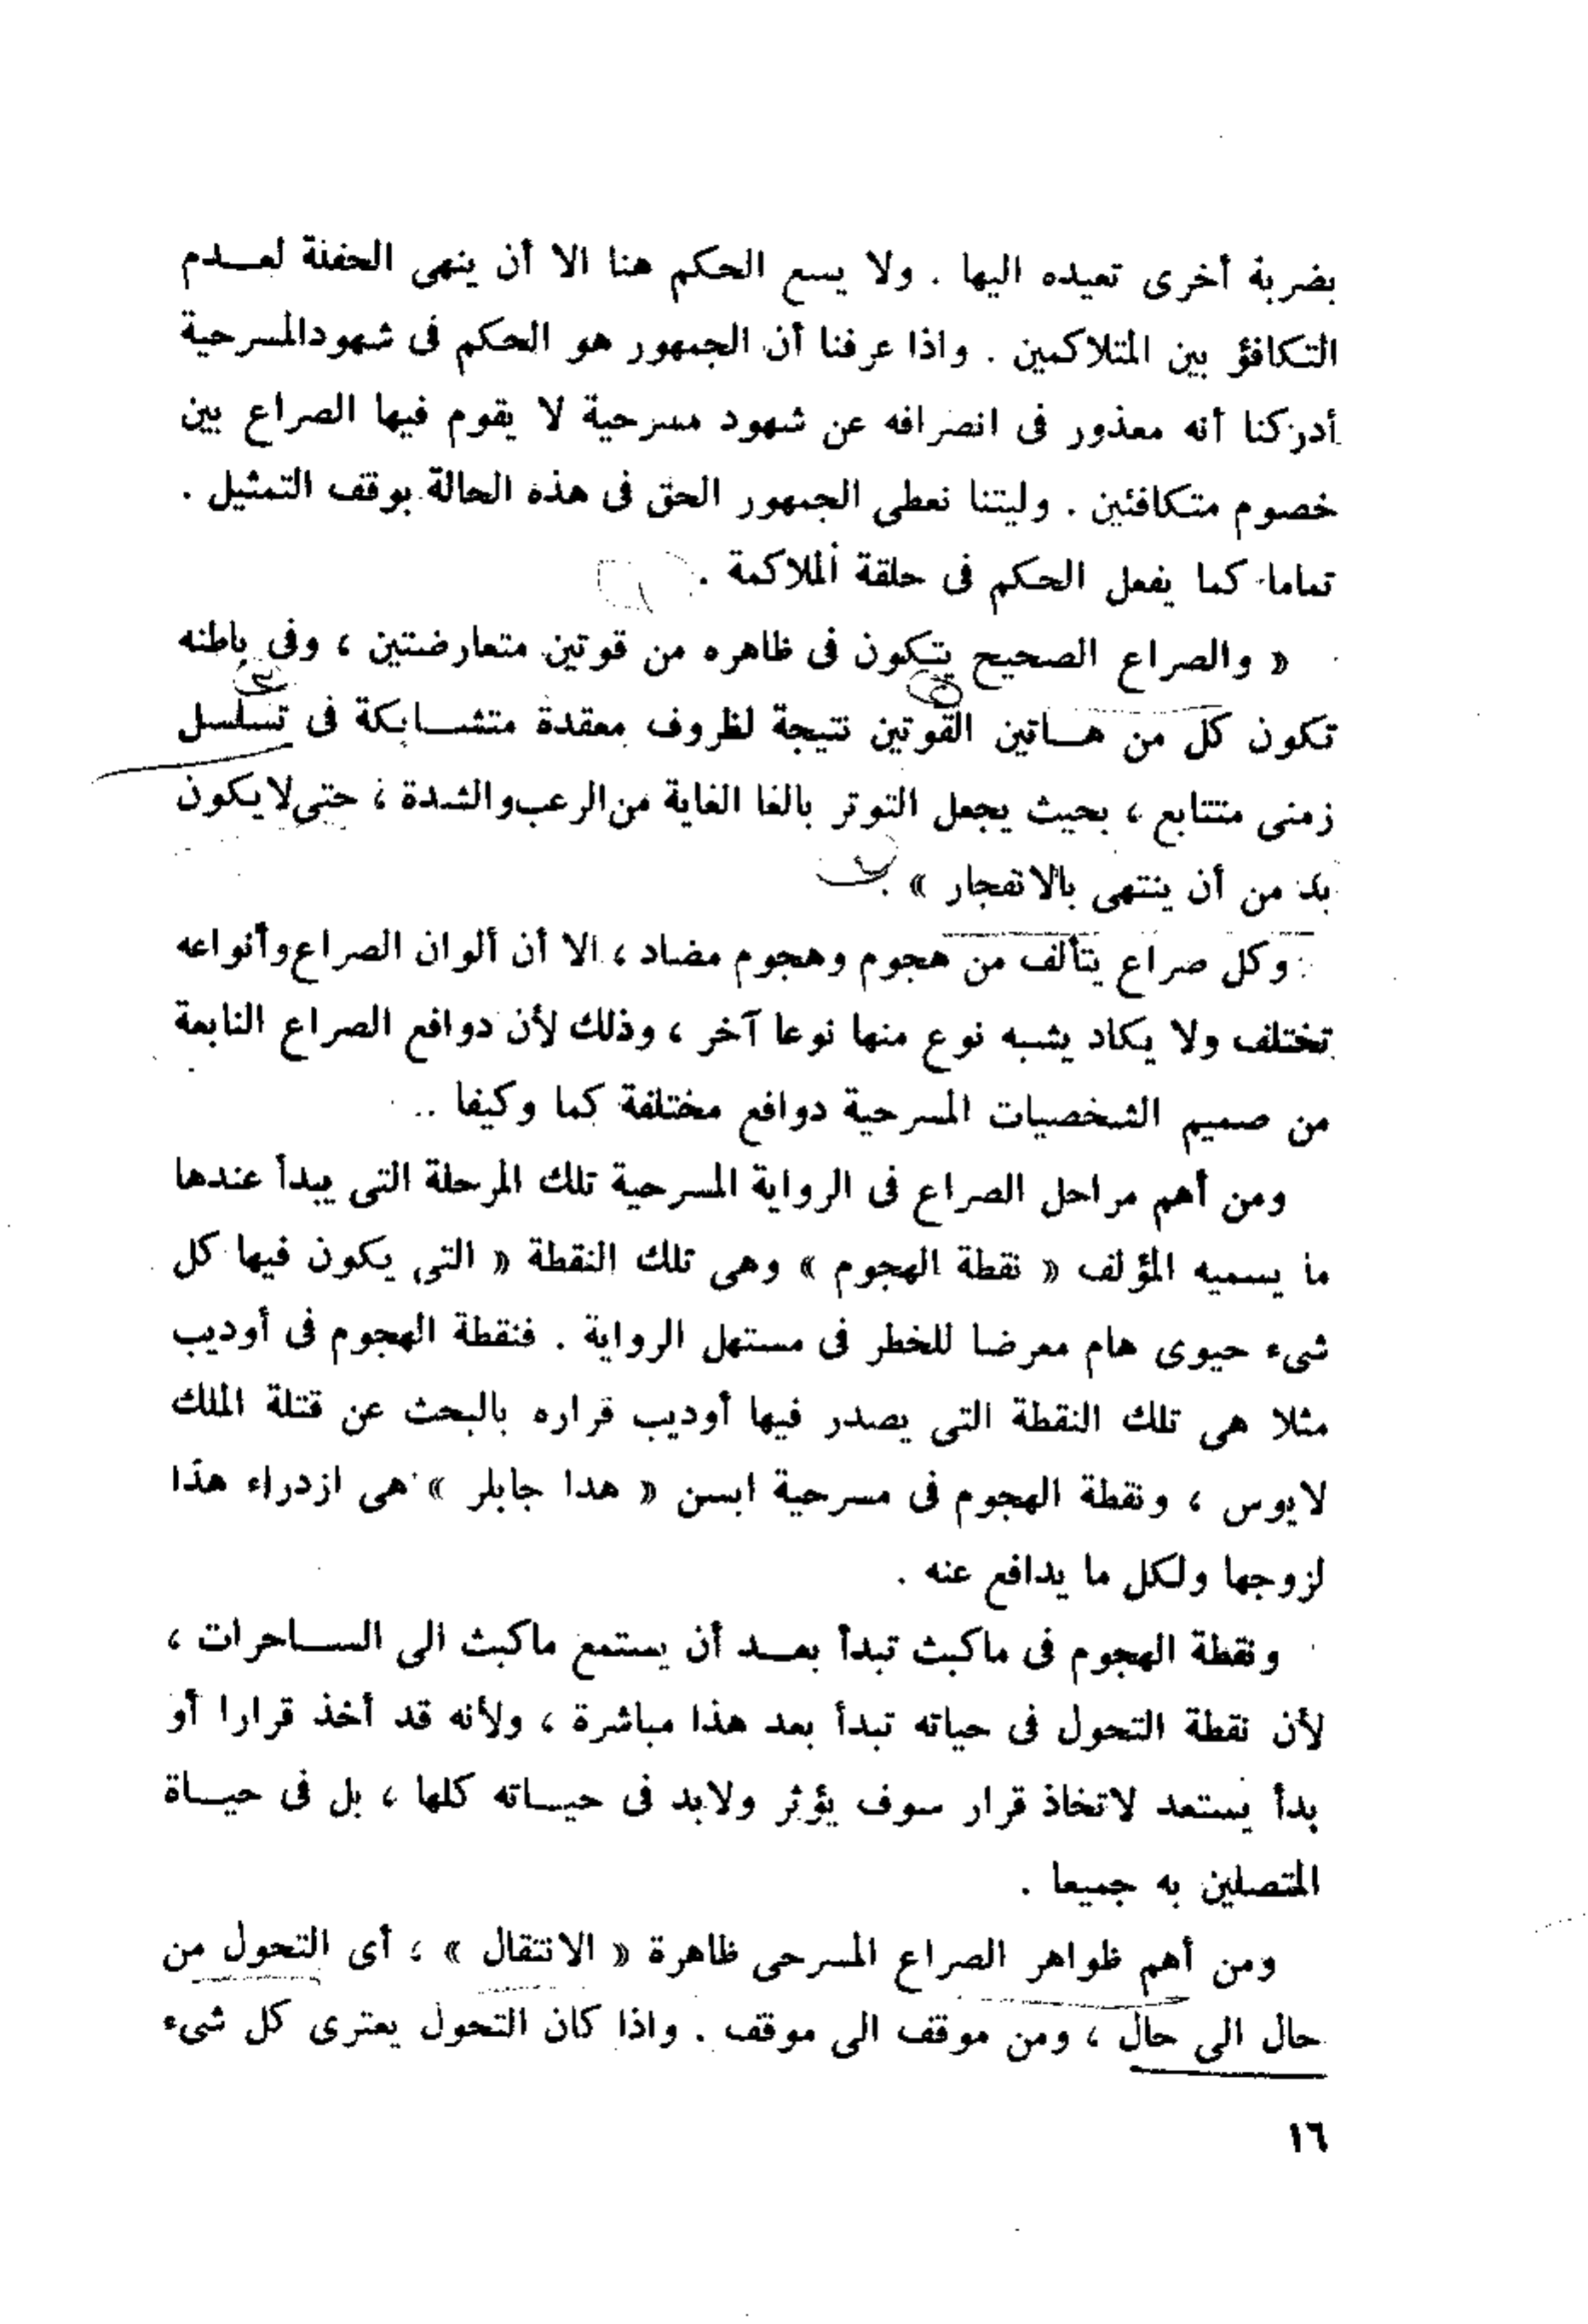 بضربة أخرى تعيده اليها . ولا يسع الحكم هنا الا أن ينهى الحفلة لعـــدم
التكافؤ بين المتلاكمين . واذا عرفنا أن الجمهور هو الحكم فى شهود المسرحية
أدركنا أنه معذور فى انصرافه عن شهود مسرحية لا يقوم فيها الصراع بين
خصوم متكافئين . وليتنا نعطى الجمهور الحق فى هذه الحالة بوقف التمثيل .
تماما كما يفعل الحكم فى حلقة الملاكمة .
« والصراع الصحيح يتكون فى ظاهره من قوتين متعارضتين ، وفى باطنه
تكون كل من هـــاتين القوتين نتيجة لظروف معقدة متشـــابكة فى تسلسل
زمنى متتابع ، بحيث يجعل التوتر بالغا الغاية من الرعب والشدة ، حتى لا يكون
بد من أن ينتهى بالانفجار » .
وكل صراع يتألف من هجوم وهجوم مضاد ، الا أن ألوان الصراع وأنواعه
تختلف ولا يكاد يشبه نوع منها نوعا آخر ، وذلك لأن دوافع الصراع النابعة
من صميم الشخصيات المسرحية دوافع مختلفة كما وكيفا ..
ومن أهم مراحل الصراع فى الرواية المسرحية تلك المرحلة التى يبدأ عندها
ما يسميه المؤلف « نقطة الهجوم » وهى تلك النقطة « التى يكون فيها كل
شىء حيوى هام معرضا للخطر فى مستهل الرواية . فنقطة الهجوم فى أوديب
مثلا هى تلك النقطة التى يصدر فيها أوديب قراره بالبحث عن قتلة الملك
لايوس ، ونقطة الهجوم فى مسرحية ابسن « هدا جابلر » هى ازدراء هدا
لزوجها ولكل ما يدافع عنه .
ونقطة الهجوم فى ماكبث تبدأ بعـــد أن يستمع ماكبث الى الســـاحرات ،
لأن نقطة التحول فى حياته تبدأ بعد هذا مباشرة ، ولأنه قد أخذ قرارا أو
بدأ يستعد لاتخاذ قرار سوف يؤثر ولابد فى حيـــاته كلها ، بل فى حيـــاة
المتصلين به جميعا .
ومن أهم ظواهر الصراع المسرحى ظاهرة « الانتقال » ، أى التحول من
حال الى حال ، ومن موقف الى موقف . واذا كان التحول يعترى كل شىء
١٦